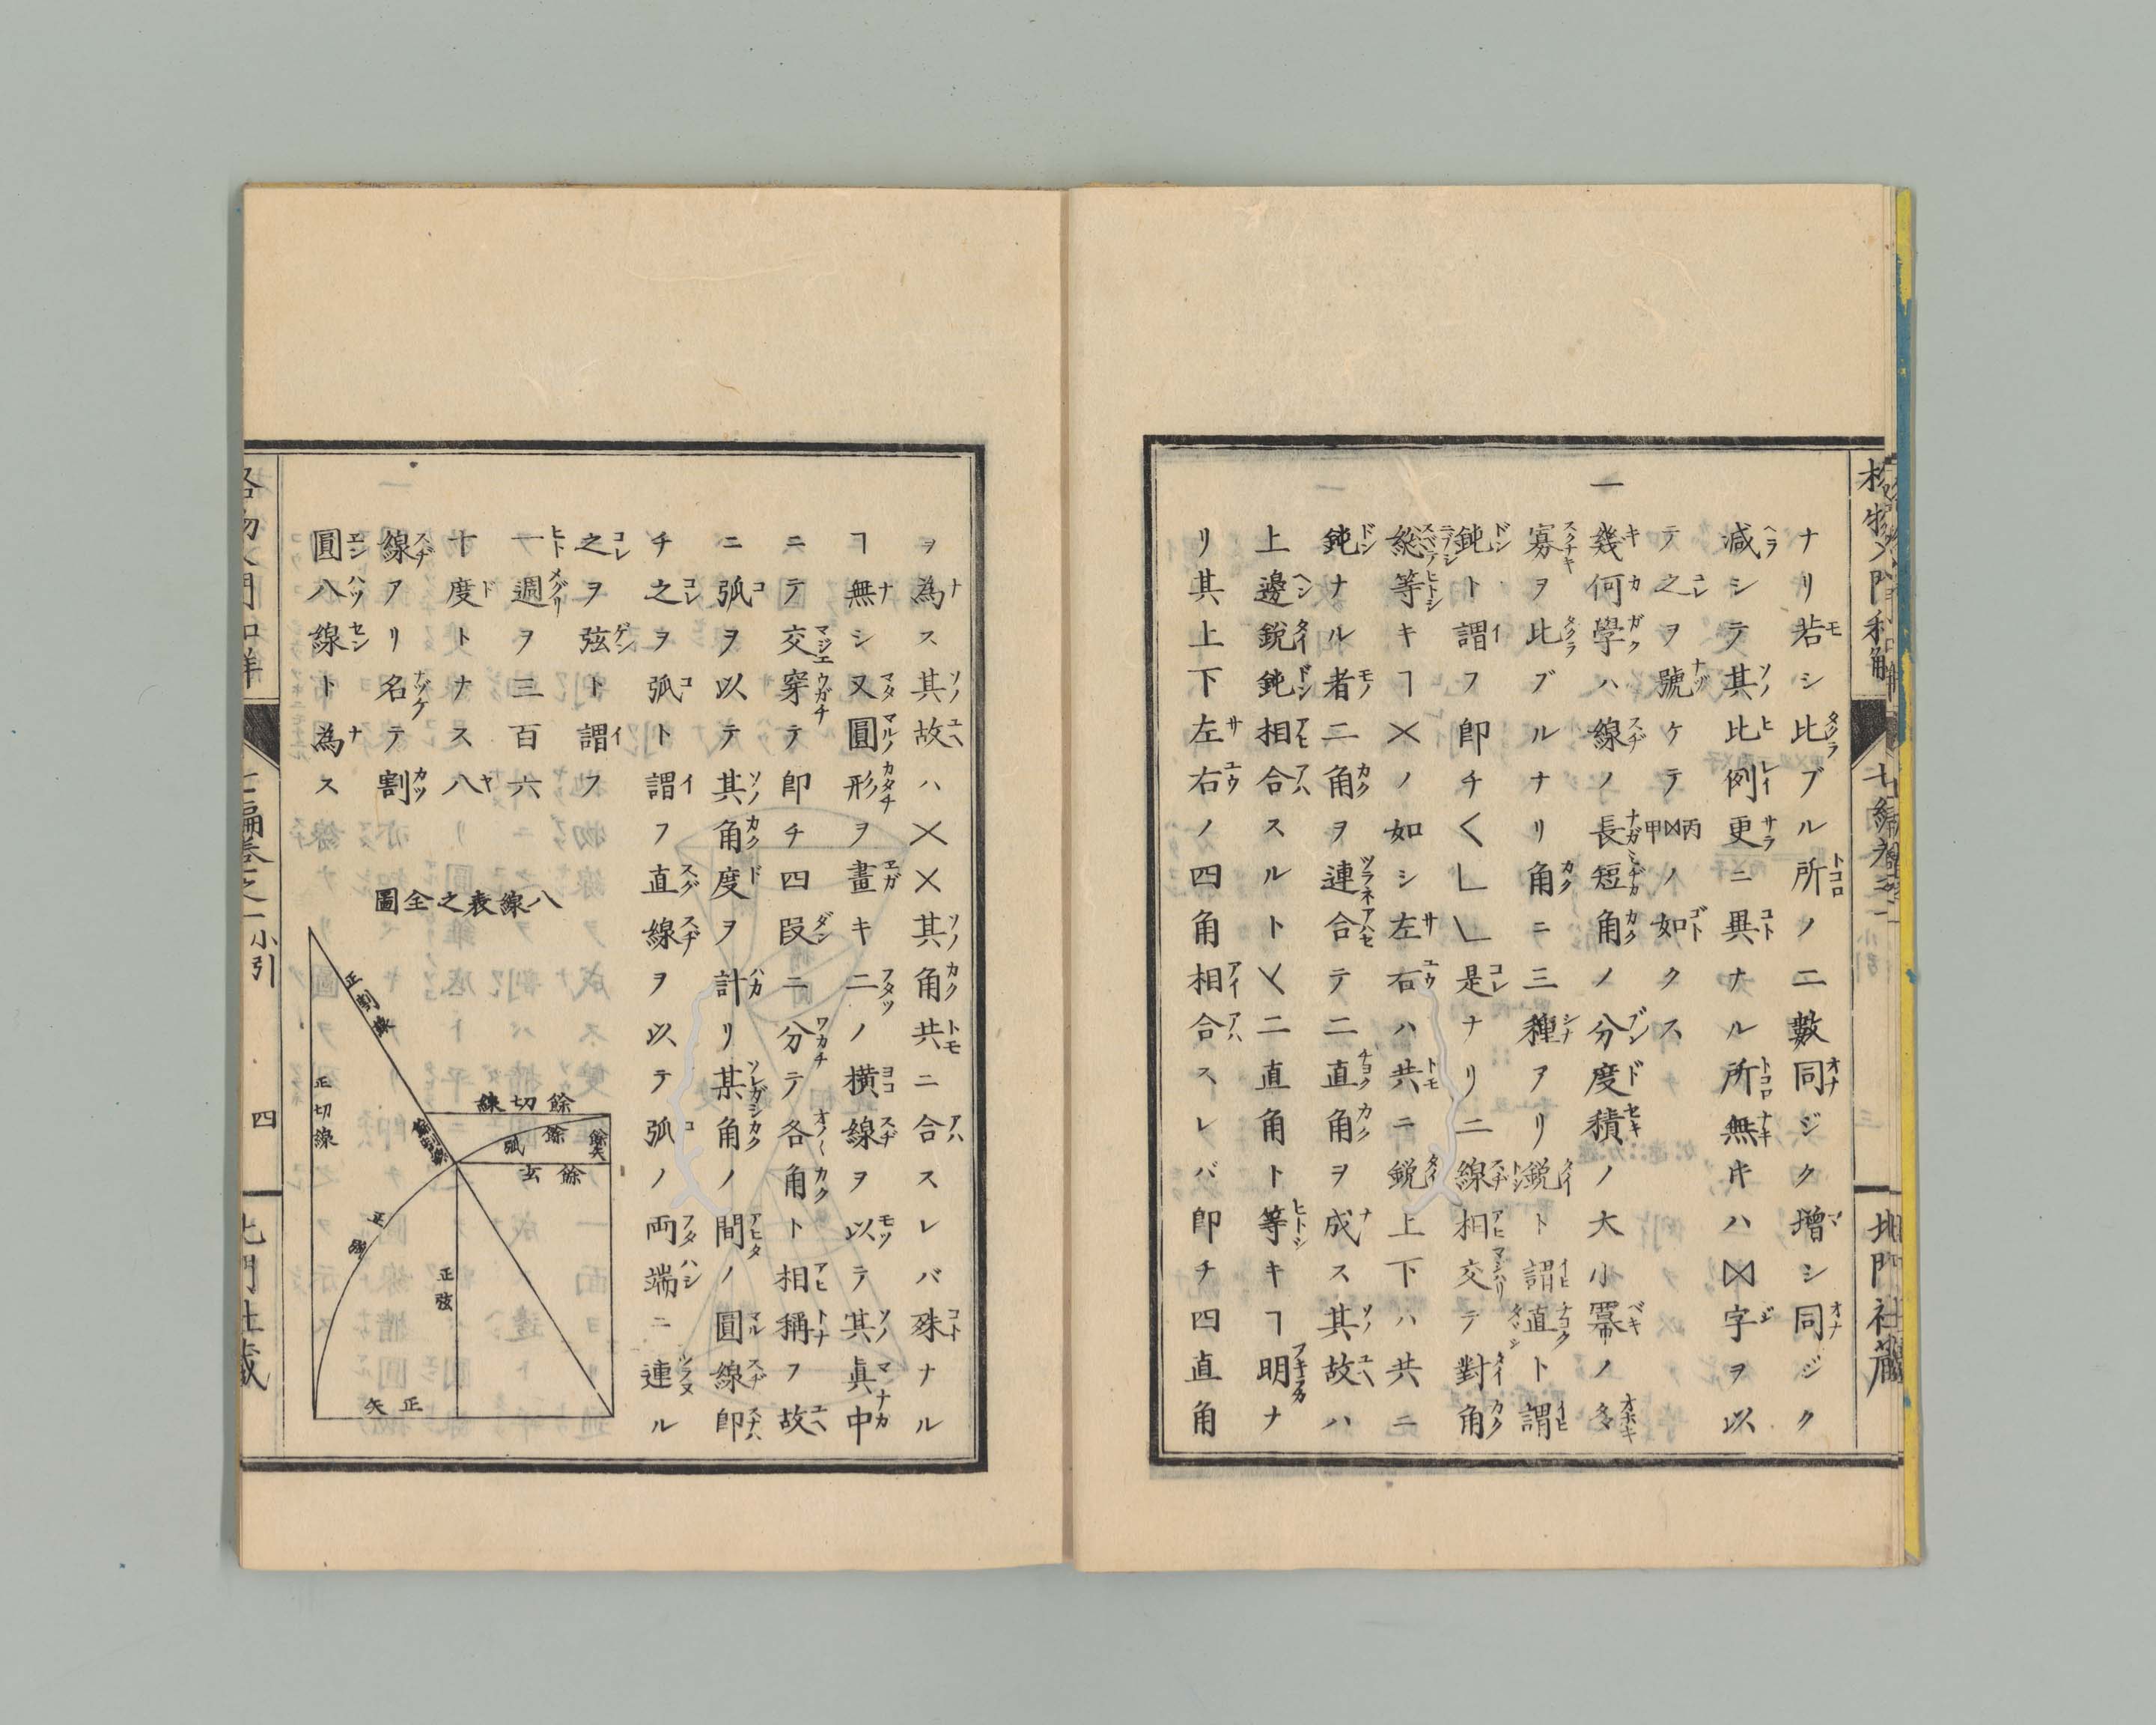 格物入門和解
七編卷之一
北門社藏
ナリ若シ比ブル所ノ二數同ジク増シ同ジク
減シテ其比例更ニ異ナル所無キハ⋈字ヲ以
テ之ヲ號ケテ甲⋈丙ノ如クス
一幾何學ハ線ノ長短角ノ分度積ノ大小冪ノ多
寡ヲ比ブルナリ角ニ三種アリ鋭ト謂直ト謂
鈍ト謂フ即チく∟\_是ナリ二線相交テ對角
縱等キヿ×ノ如シ左右ハ共ニ鋭上下ハ共ニ
鈍ナル者二角ヲ連合テ二直角ヲ成ス其故ハ
上邊鋭鈍相合スルト〱二直角ト等キヿ明ナ
リ其上下左右ノ四角相合スレバ即チ四直角
ヲ為ス其故ハ××其角共ニ合スレバ殊ナル
ヿ無シ又圓形ヲ畫キ二ノ横線ヲ以テ其眞中
ニテ交穿テ即チ四段ニ分テ各角ト相稱フ故
ニ弧ヲ以テ其角度ヲ計リ某角ノ間ノ圓線即
チ之ヲ弧ト謂フ直線ヲ以テ弧ノ両端ニ連ル
之ヲ弦ト謂フ
一週ヲ三百六
十度トナス八
線アリ名テ割
圓八線ト為ス
八線表之全圖
正割線
正切線
餘切線
餘割線
餘弧
餘矢
餘玄
正弧
正弦
正矢
格物入門和解
七編卷之一 小引
四
北門社藏